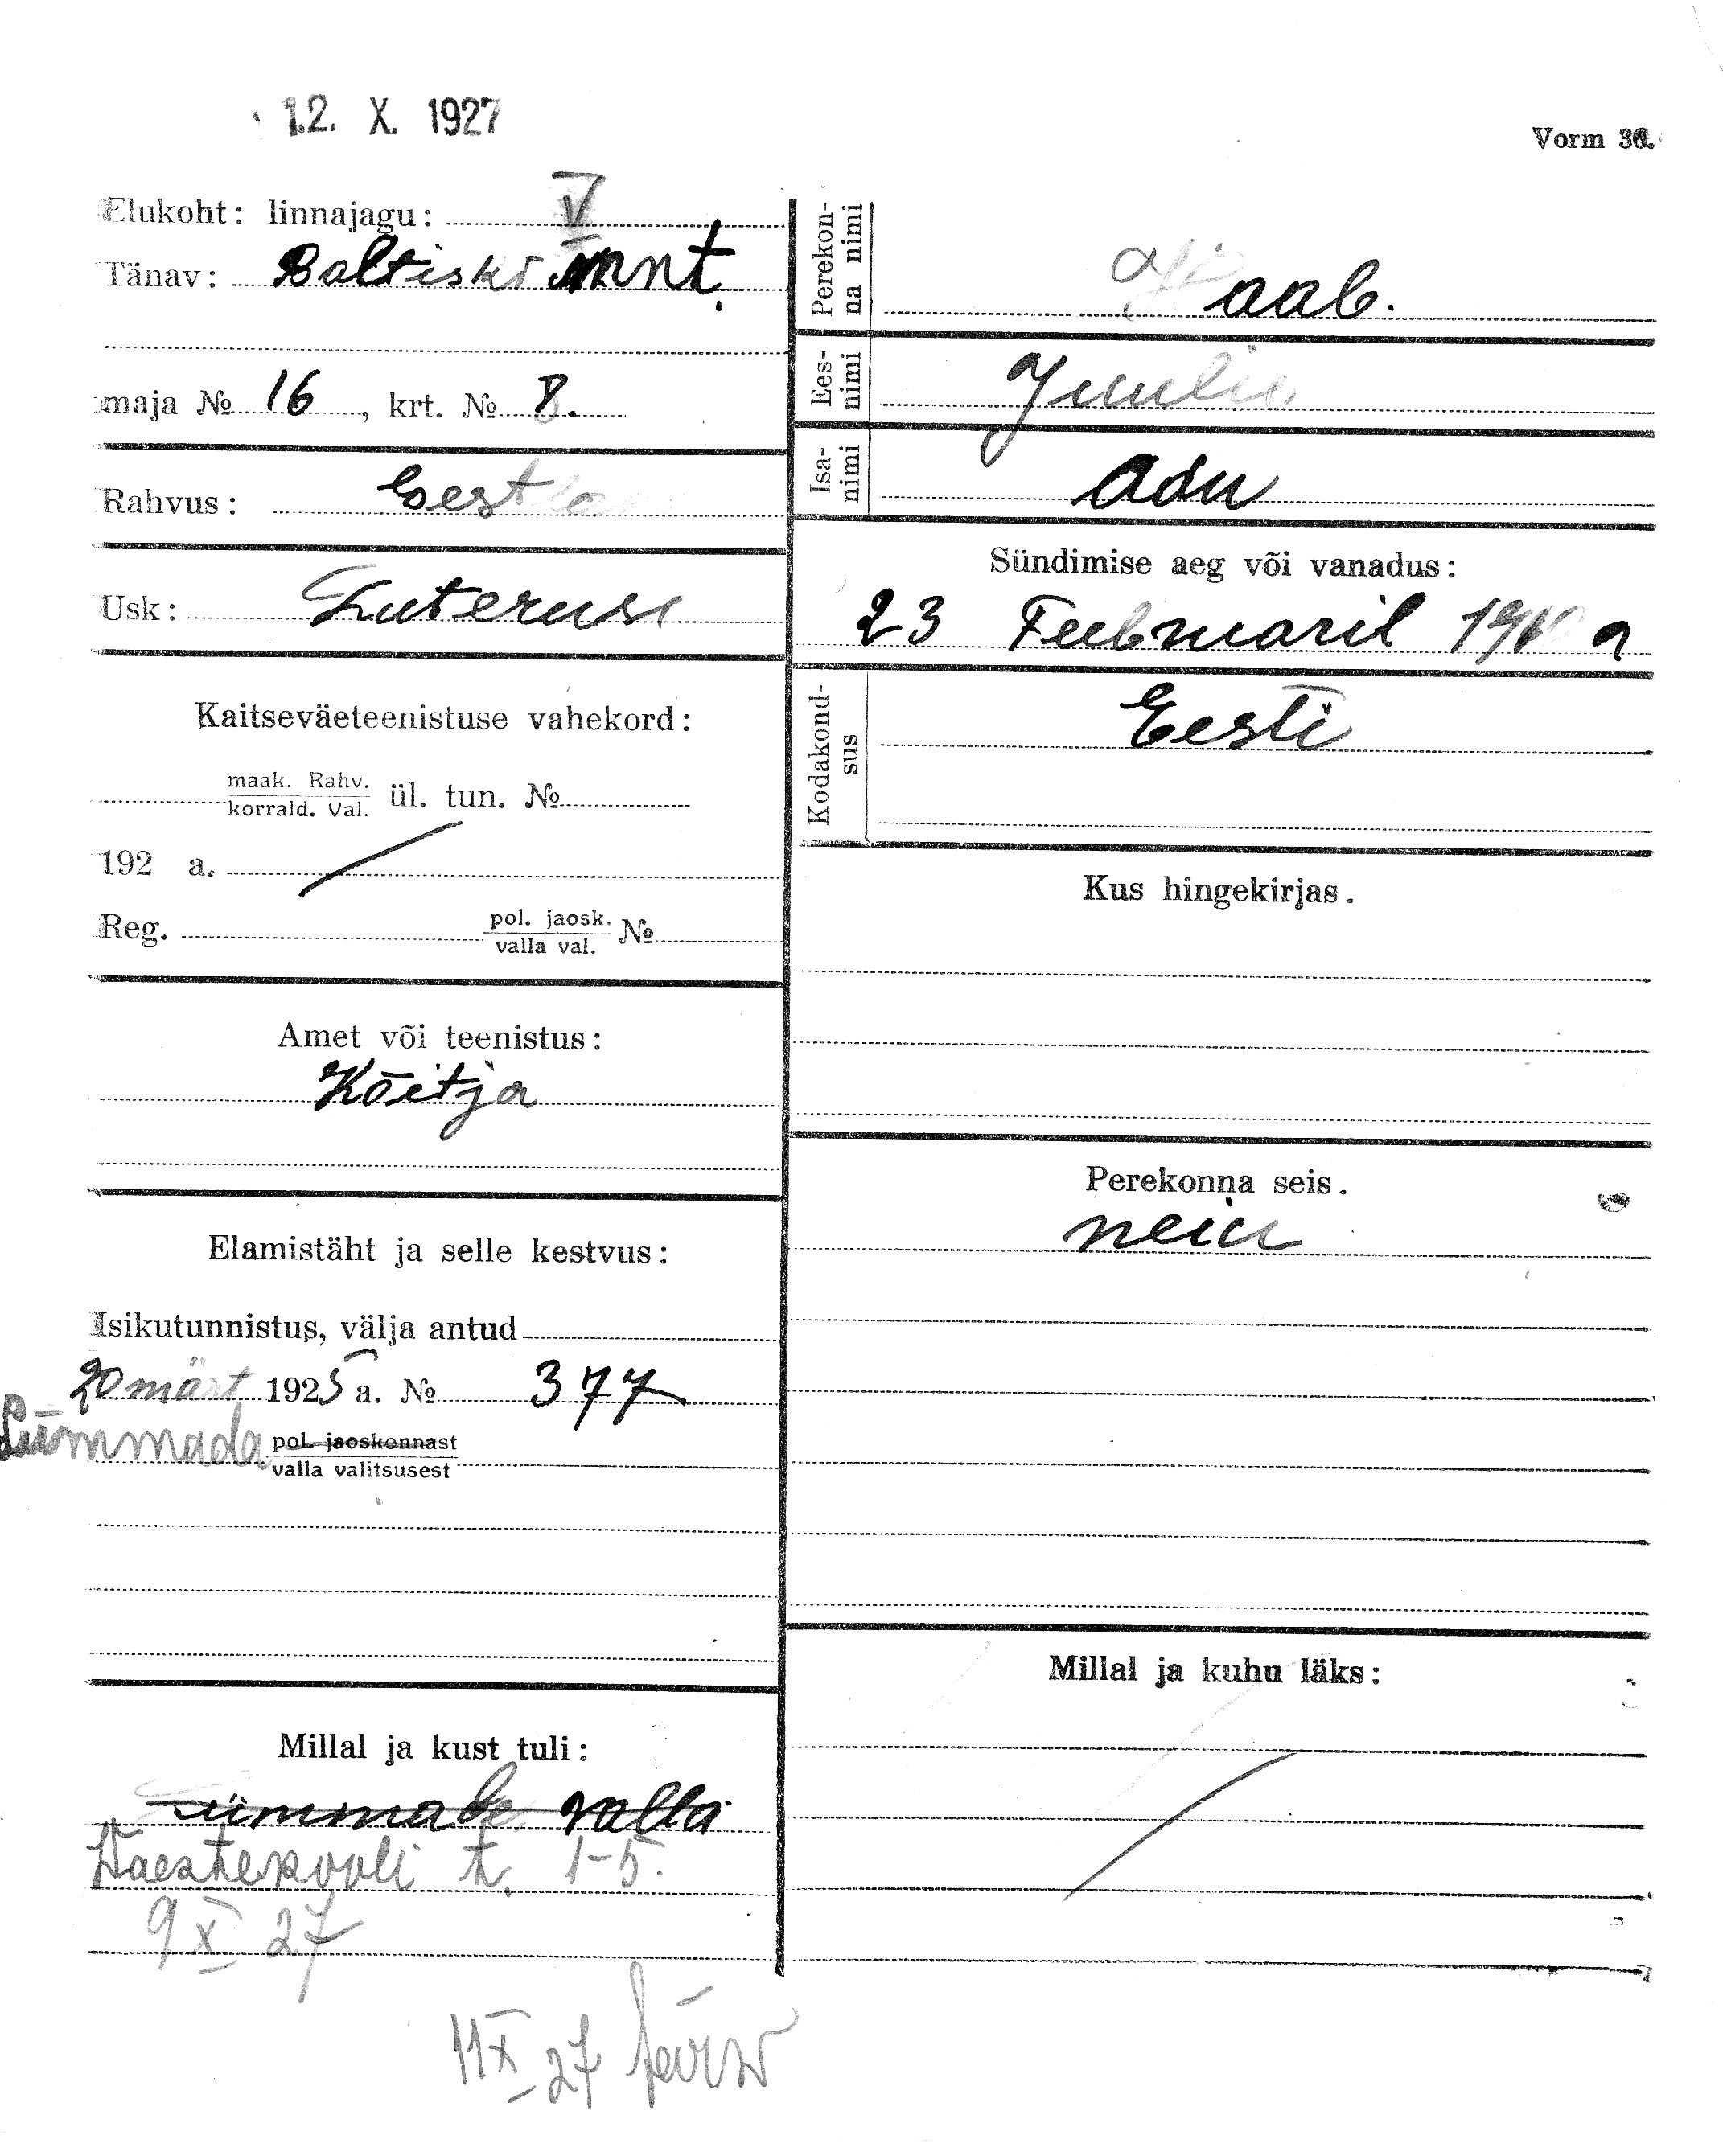 12. X. 1927
Vorm 36.
Elukoht: linnajagu: V
Tänav: Baltiski mnt.
maja № 16, krt. № 8.
Rahvus: Eestlane
Usk: Luteruse
Kaitseväeteenistuse vahekord:
maak. Rahv.
korrald. Val. ül. tun. №
192 a.
Reg. pol. jaosk.
valla val. №
Amet või teenistus:
Köitja
Elamistäht ja selle kestvus:
Isikutunnistus, välja antud
20 märt 1925 a. № 377
Lümmada pol. jaoskonnast
valla valitsusest
Millal ja kust tuli:
Lümmada valla
Waestekooli t. 1-5.
9 X 27
Perekon-
na nimi
Haab.
Ees-
nimi
Juulia
Isa-
nimi
Adu
Sündimise aeg või vanadus:
23 Feebruaril a
Kodakond-
sus
Eesti
Kus hingekirjas.
Perekonna seis.
neiu
Millal ja kuhu läks:
11 X 27